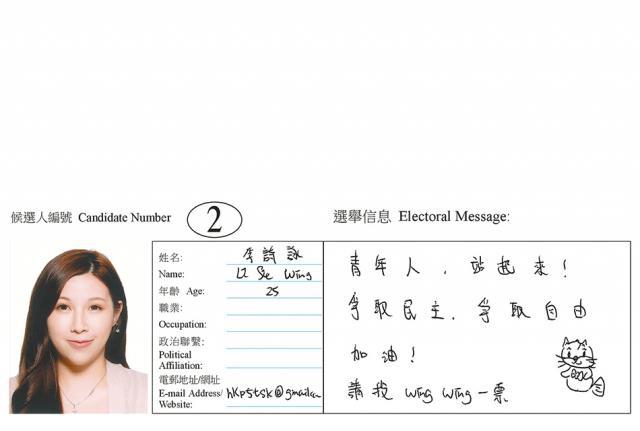 候選人編號 Candidate Number 2
選舉信息 Electoral Message:
姓名: 李詩詠
Name: LI Sze Wing
年齡 Age: 25
職業:
Occupation:
政治聯繫:
Political
Affiliation:
電郵地址/網址
E-mail Address/
Website:
青年人，站起來！
爭取民主，爭取自由
加油！
請投 Wing Wing 一票